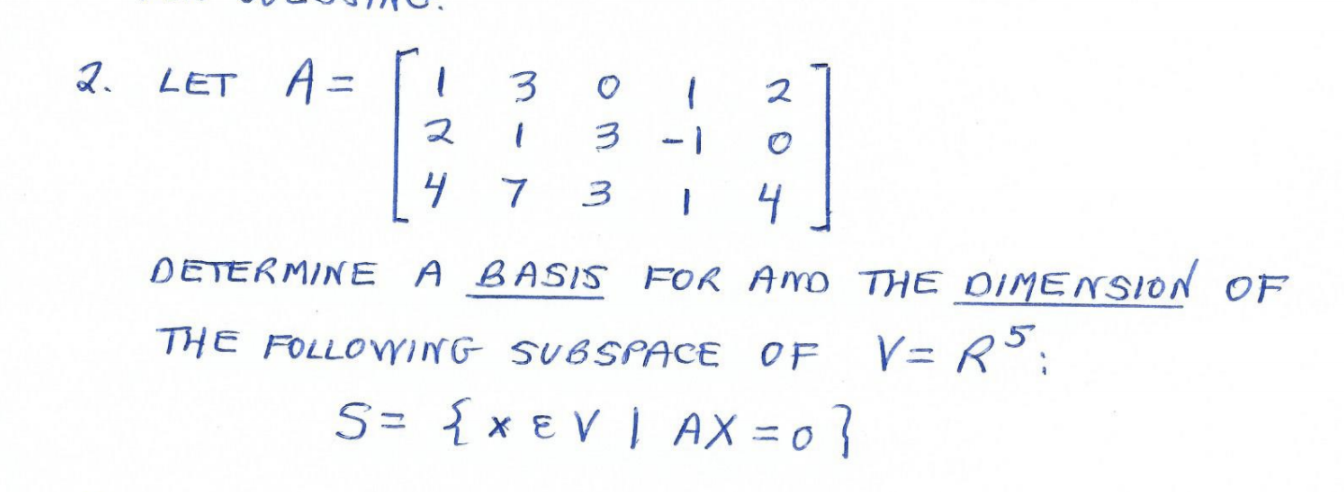 2. LET A = [ 1 3 0 1 2
2 1 3 -1 0
4 7 3 1 4 ]
DETERMINE A BASIS FOR AND THE DIMENSION OF
THE FOLLOWING SUBSPACE OF V = R⁵:
S = { x ε V | AX = 0 }